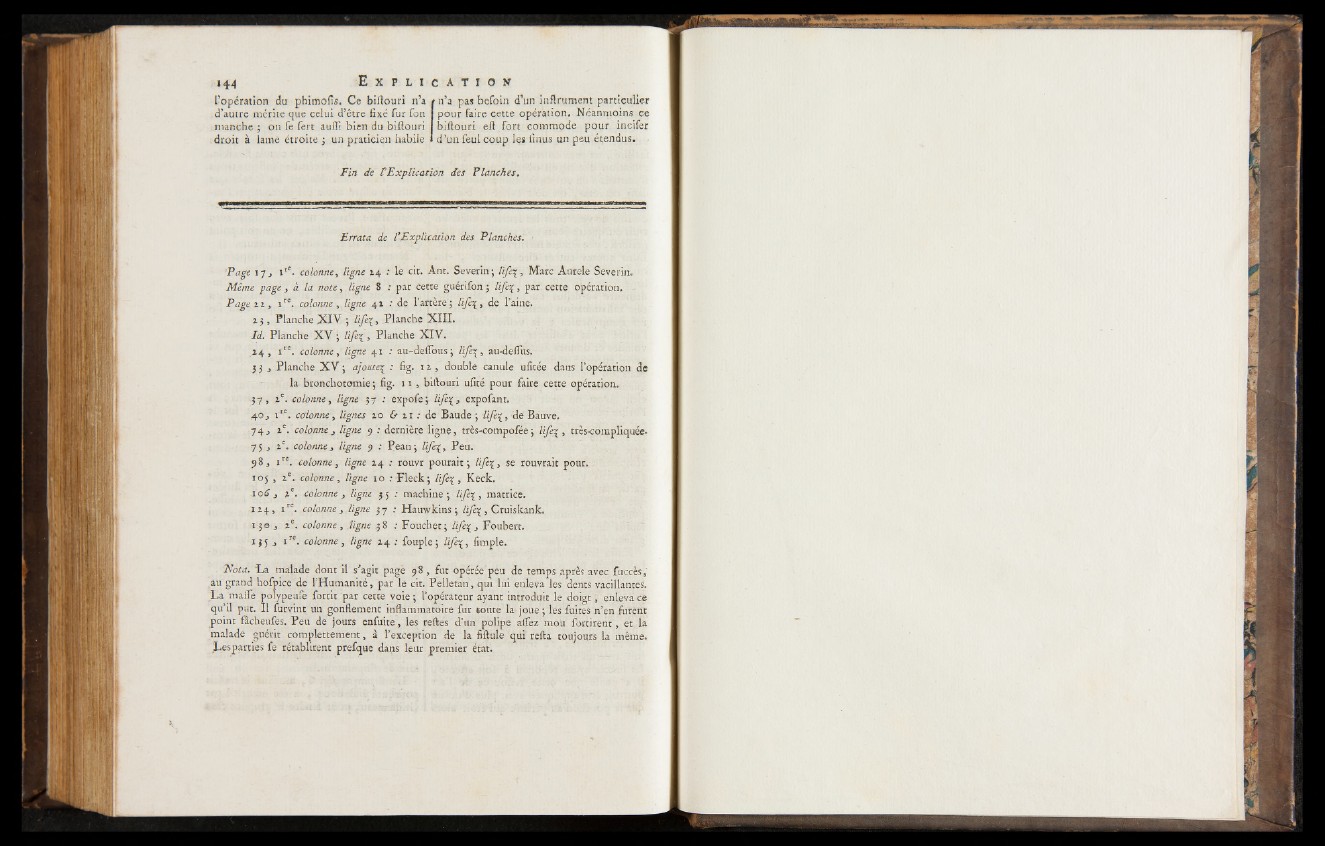 144 EXPLICATION
l'opération du phimosis. Ce bistouri n'a
d'autre mérite que celui d'être fixé sur son
manche ; on se sert aussi bien du bistouri
droit à lame étroite ; un praticien habile
n'a pas besoin d'un instrument particulier
pour faire cette opération. Néanmoins ce
bistouri est fort commode pour inciser
d'un seul coup les sinus un peu étendus.
Fin de l'Explication des Planches.
Errata de l'Explication des Planches.
Page 17, 1re. colonne, ligne 24 : le cit. Ant. Severin ; lisez, Marc Aurele Severin.
Même page, à la note, ligne 8 : par cette guérison ; lisez, par cette opération.
Page 22, 1re. colonne, ligne 42 : de l'artère ; lisez, de l'aine.
23, Planche XIV ; lisez, Planche XIII.
Id. Planche XV ; lisez, Planche XIV.
24, 1re. colonne, ligne 41 : au-dessous ; lisez, au-dessus.
33, Planche XV ; ajoutez : fig. 12, double canule usitée dans l'opération de
la bronchotomie ; fig. 11, bistouri usité pour faire cette opération.
37, 2e. colonne, ligne 37 : expose ; lisez, exposant.
40, 1re. colonne, lignes 20 & 21 : de Baude ; lisez, de Bauve.
74, 2e. colonne, ligne 9 : dernière ligne, très-composée ; lisez, très-compliquée.
75, 2e. colonne, ligne 9 : Pean ; lisez, Peu.
98, 1re. colonne, ligne 24 : rouvr pourait ; lisez, se rouvrait pour.
105, 2e. colonne, ligne 10 : Fleck ; lisez, Keck.
106, 2e. colonne, ligne 35 : machine ; lisez, matrice.
124, 1re. colonne, ligne 37 : Hauwkins ; lisez, Cruiskank.
130, 2e. colonne, ligne 38 : Fouchet ; lisez, Foubert.
135, 1re. colonne, ligne 24 : souple ; lisez, simple.
Nota. La malade dont il s'agit page 98, fut opérée peu de temps après avec succès,
au grand hospice de l'Humanité, par le cit. Pelletan, qui lui enleva les dents vacillantes.
La masse polypeuse sortit par cette voie ; l'opérateur ayant introduit le doigt, enleva ce
qu'il put. Il survint un gonflement inflammatoire sur toute la joue ; les suites n'en furent
point fâcheuses. Peu de jours ensuite, les restes d'un polipe assez mou sortirent, et la
malade guérit complettement, à l'exception de la fistule qui resta toujours la même.
Les parties se rétablirent presque dans leur premier état.